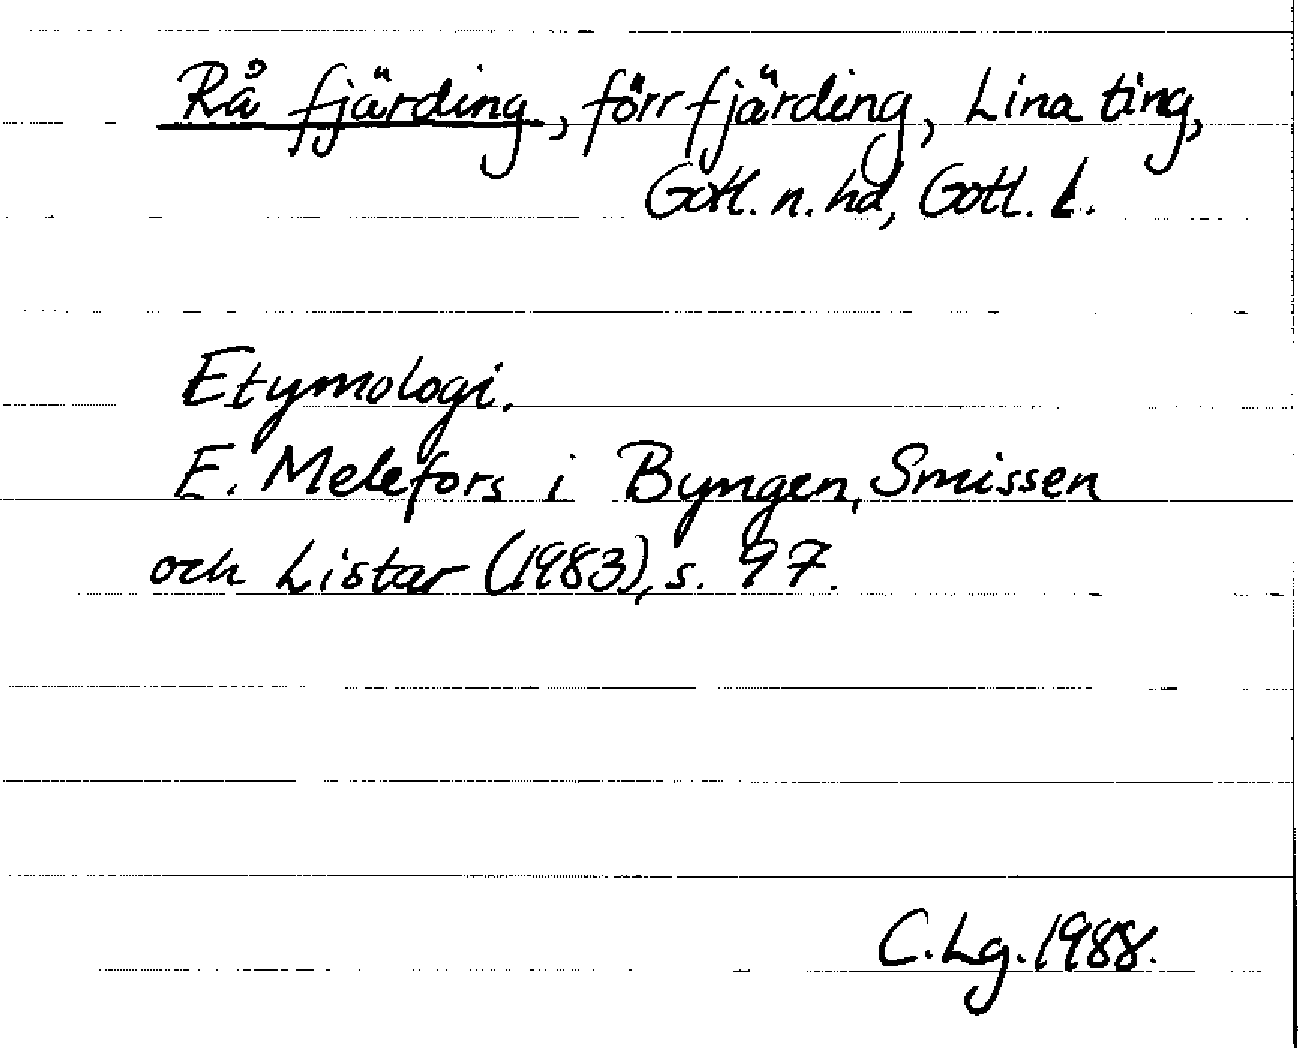 Rå fjärding, förr fjärding, Lina ting,
Gotl. n. hd, Gotl. l.
Etymologi.
E. Melefors i Byngen, Smissen
och Listar (1983), s. 97.
C. Lg. 1988.